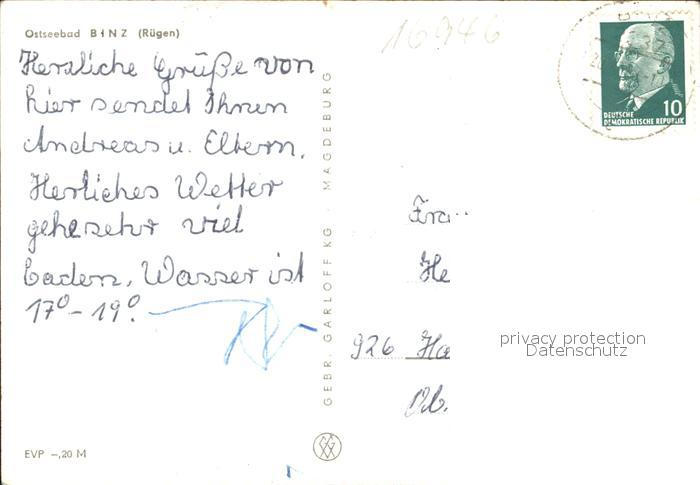 Ostseebad BINZ (Rügen)
16946
Herzliche Grüße von
hier sendet Ihnen
Andreas u. Eltern.
Herliches Wetter
gehe sehr viel
baden, Wasser ist
17° - 19°.
EVP -,20 M
GEBR. GARLOFF KG · MAGDEBURG
10
DEUTSCHE
DEMOKRATISCHE REPUBLIK
Fra
He
926 Ha
privacy protection
Datenschutz